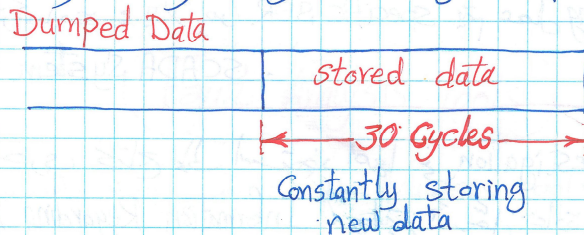 Dumped Data
stored data
30 Cycles
Constantly storing
new data